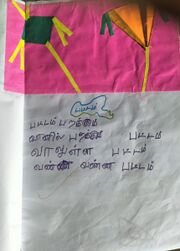 பட்டம்
பட்டம் பறக்கும்
வானில் பறக்கும் பட்டம்
வாலுள்ள பட்டம்
வண்ண வண்ண பட்டம்